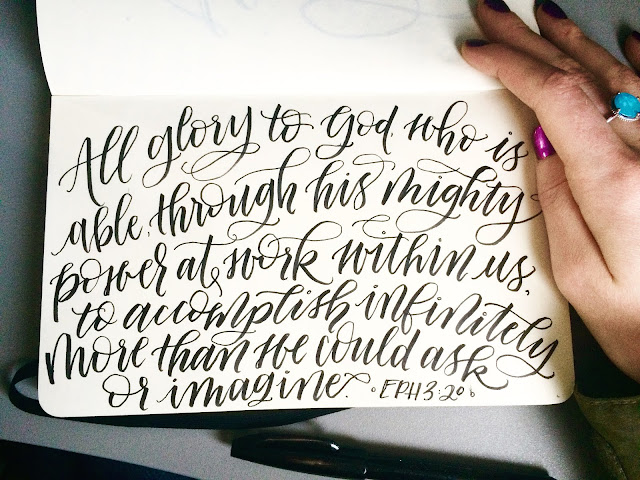 All glory to God, who is
able, through his mighty
power at work within us,
to accomplish infinitely
more than we could ask
or imagine. • EPH 3:20 •